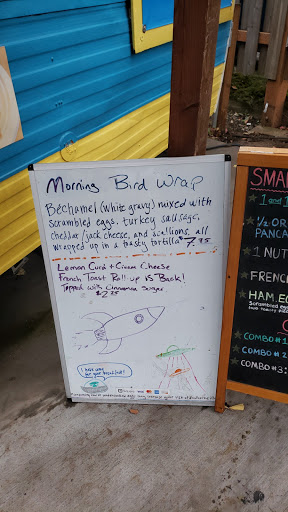 Morning Bird Wrap
Béchamel (white gravy) mixed with
scrambled eggs, turkey sausage,
cheddar/jack cheese, and scallions, all
wrapped up in a toasty tortilla 7.95
Lemon Curd + Cream Cheese
French Toast Roll-up is Back!
Topped with Cinnamon Sugar
$2.25
for your breakfast!
SMA
1 and 1
1/2 OR
PANCA
1 NUT
FRENC
HAM, EG
COMBO #1
COMBO #2
COMBO #3: